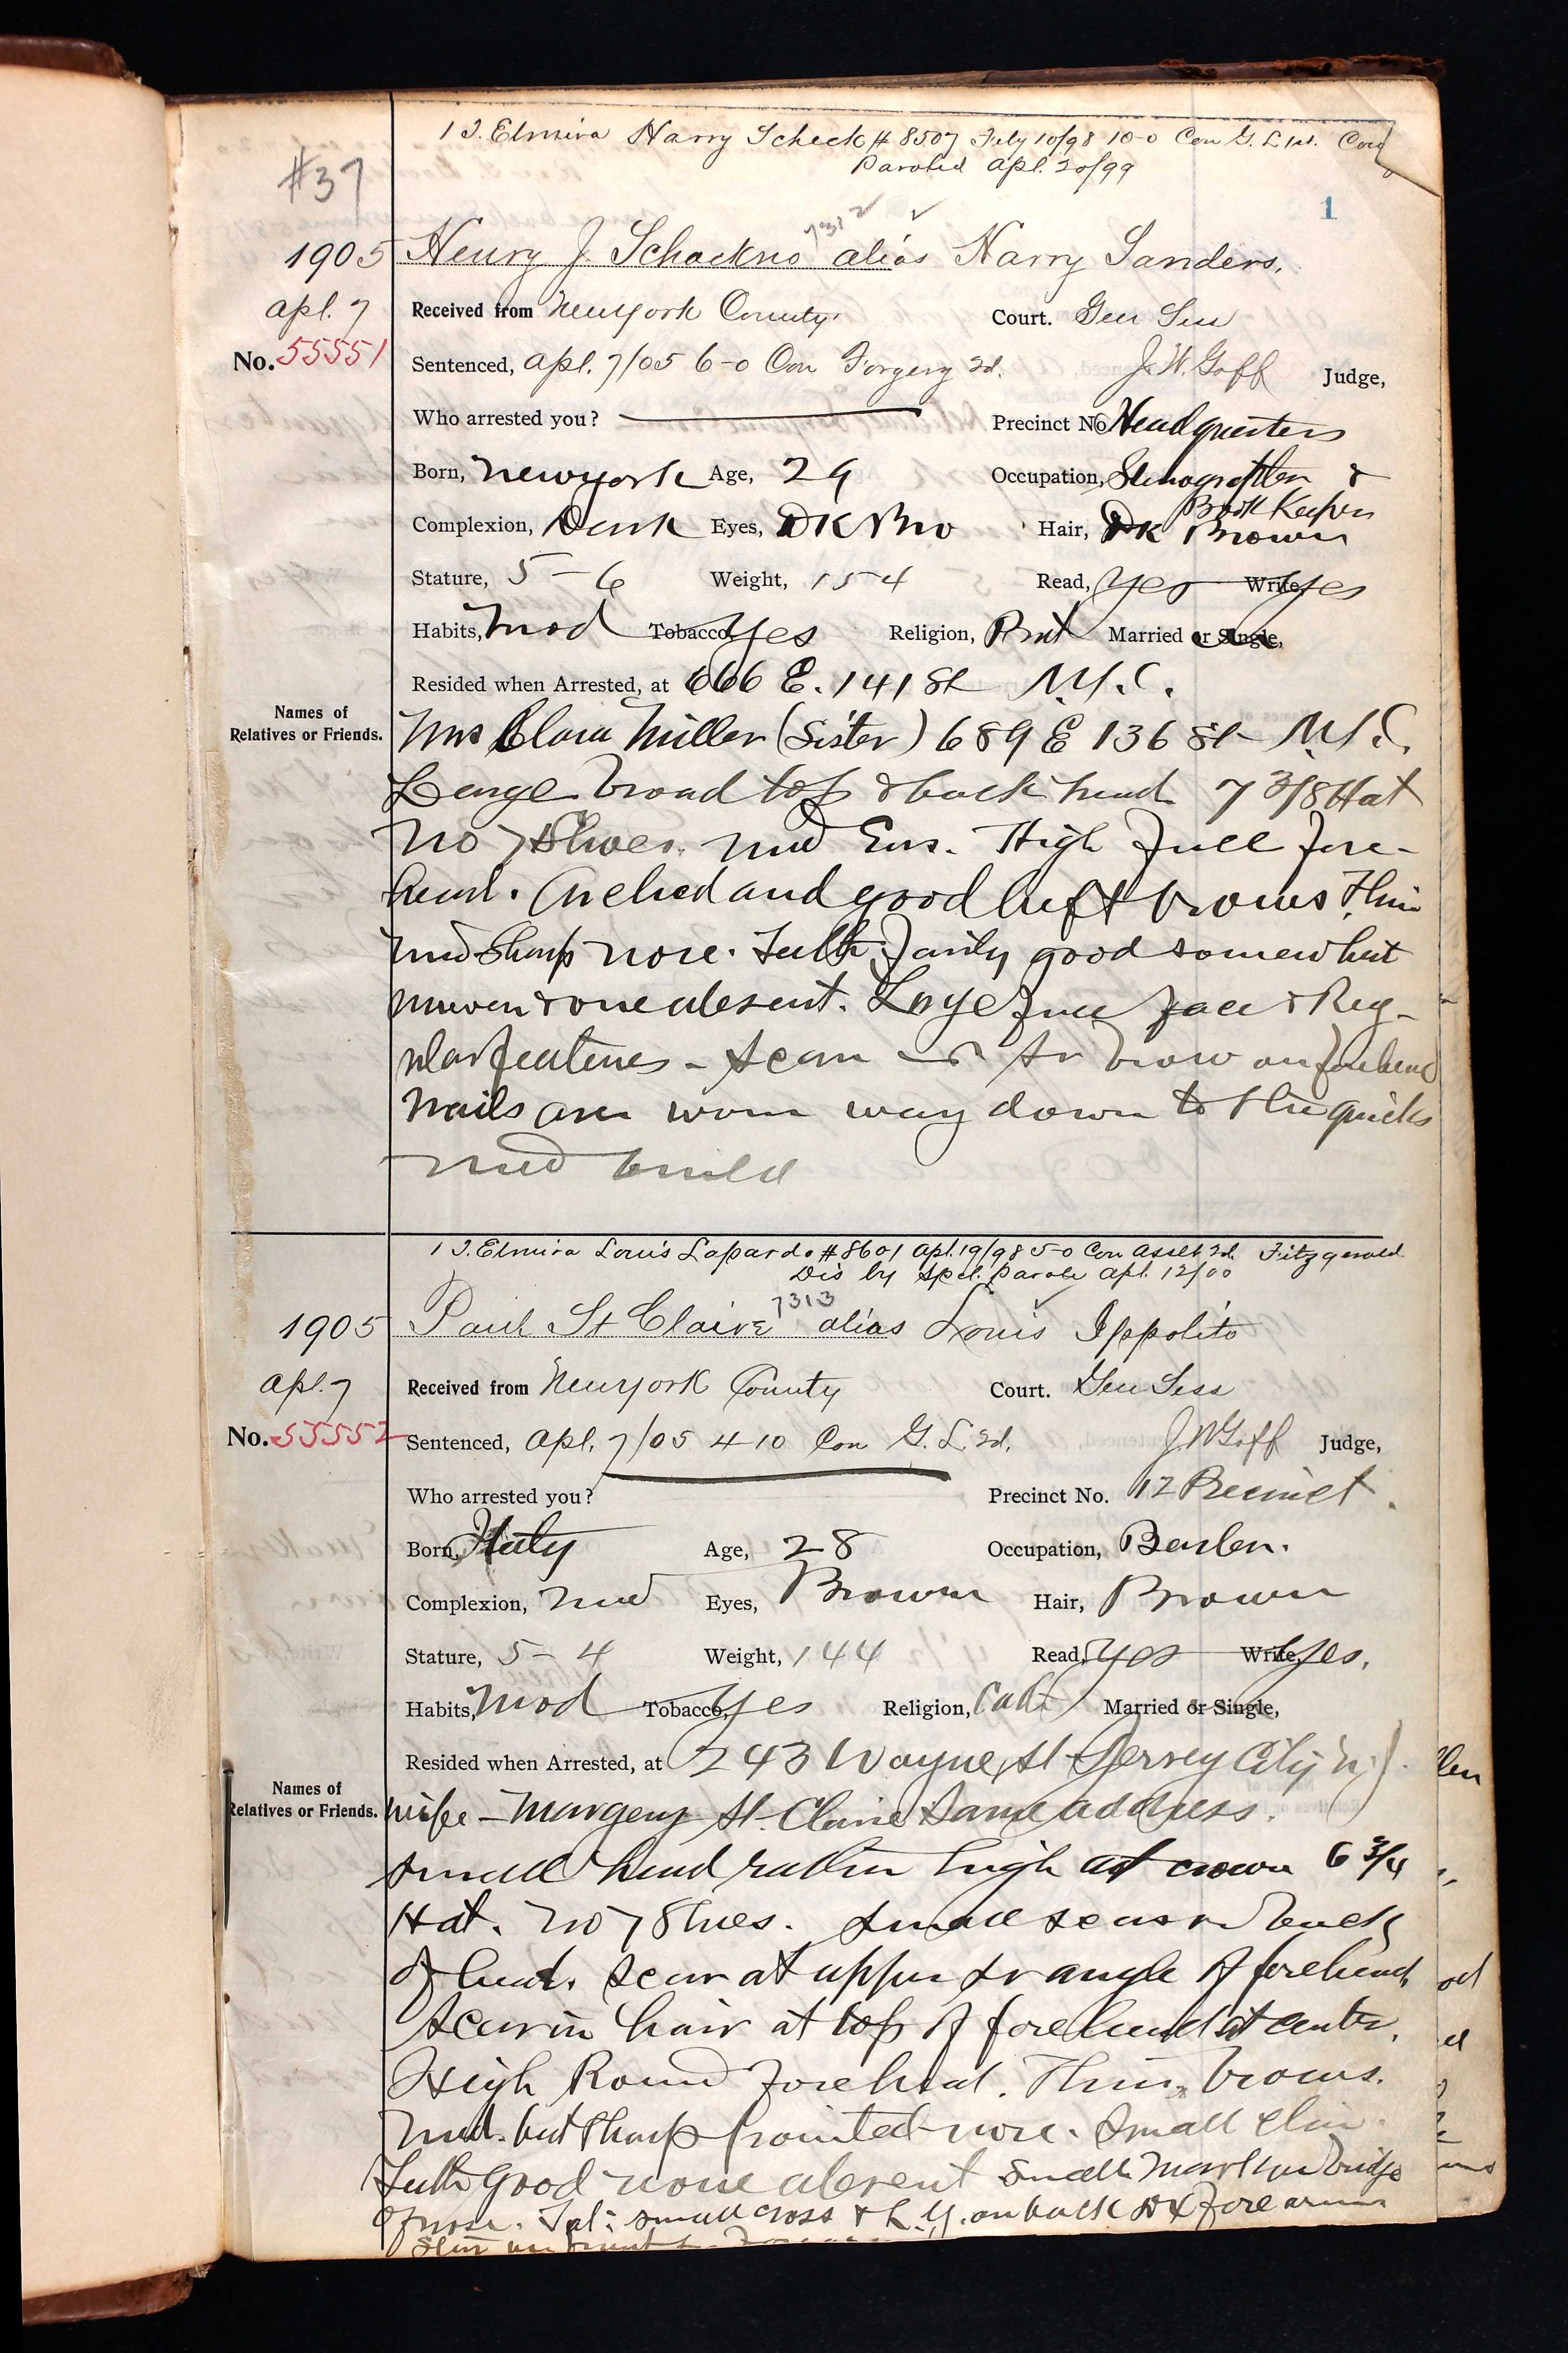 1 T. Elmira Harry Scheck # 8507 July 10/98 10-0 Con G. L 1st.
Paroled Apl. 20/99
#37
1
1905 Henry J. Schackno alias Harry Sanders.
Apl. 7 Received from New York County. Court. Gen Sess
No. 55551 Sentenced, Apl. 7/05 6-0 Con Forgery 2d. J. W. Goff Judge,
Who arrested you? Precinct No. Headquarters
Born, New York Age, 29 Occupation, Stenographer &
Book Keeper
Complexion, Dark Eyes, Dk Bro Hair, Dk Brown
Stature, 5-6 Weight, 154 Read, Yes Write, Yes
Habits, Mod Tobacco, Yes Religion, Prot Married or Single,
Resided when Arrested, at 666 E. 141 St N.Y.C.
Names of Relatives or Friends. Mrs Clara Miller (Sister) 689 E 136 St N.Y.C.
Large broad top & back head 7 3/8 Hat
No 7 Shoes. Med Ears. High full fore-
head. Arched and good heft brows Thin
Med Sharp nose. Teeth fairly good somewhat
uneven & one absent. Large full face & Reg-
ular features - Scar brow on forehead
Nails are worn way down to the quicks
Med build
1 T. Elmira Louis Lopardo # 8601 Apl. 19/98 5-0 Con Aslt 2d. Fitzgerald
Dis by Spcl. parole Apl. 12/00
7313
1905 Paul St Claire alias Louis Ippolito
Apl. 7 Received from New York County Court. Gen Sess
No. 55552 Sentenced, Apl. 7/05 4-10 Con G. L. 2d. J. W Goff Judge,
Who arrested you? Precinct No. 12 Precinct.
Born, Italy Age, 28 Occupation, Barber.
Complexion, Med Eyes, Brown Hair, Brown
Stature, 5-4 Weight, 144 Read, Yes Write, Yes.
Habits, Mod Tobacco, Yes Religion, Cath Married or Single,
Resided when Arrested, at 243 Wayne St Jersey City N.J.
Names of Relatives or Friends. Wife - Margery St. Claire Same address.
Small head rather high at crown 6 3/4
Hat. No 7 Shoes. Small scar on back
of head. Scar at upper angle of forehead
Scar in hair at top of forehead at center.
High Round Forehead. Thin brows.
Med. but Sharp pointed nose. Small chin.
Teeth good none absent Small Mark on bridge
of nose. Tat: small cross & L. Y. on back forearm